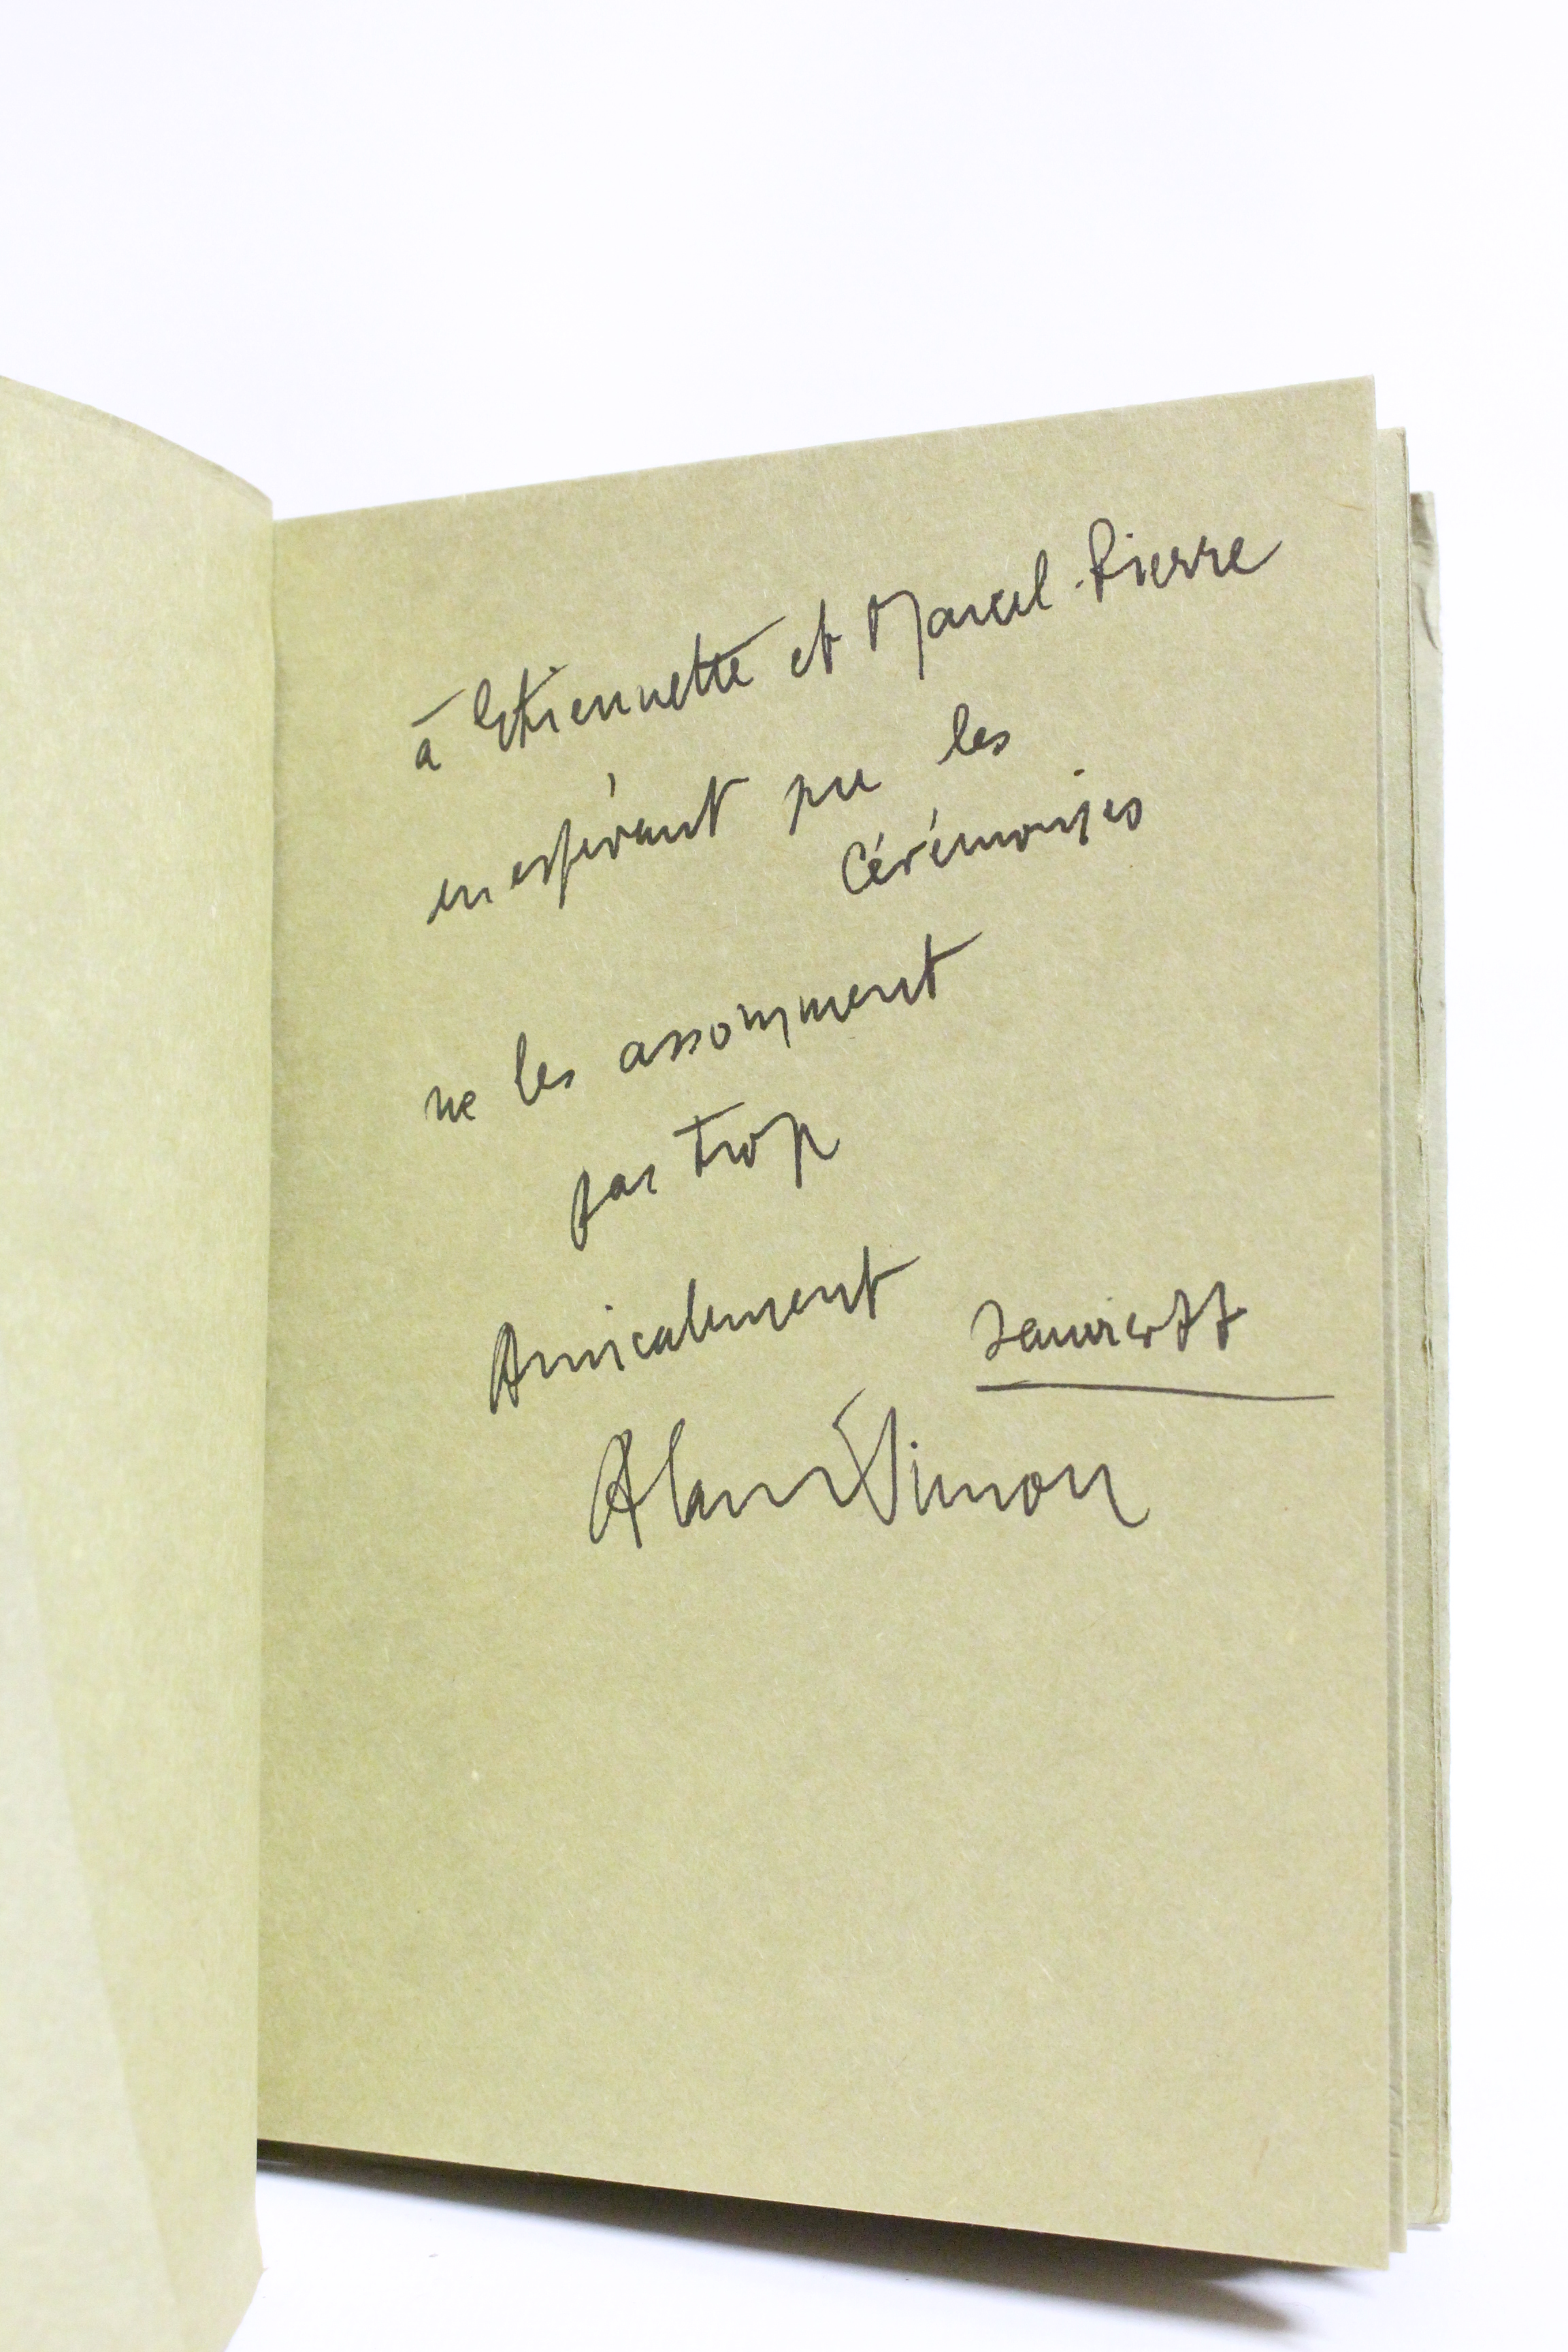 à Etiennette et Marcel-Pierre
en espérant que les
Cérémonies
ne les assomment
pas trop
Amicalement
Janvier 77
Alfred Simon